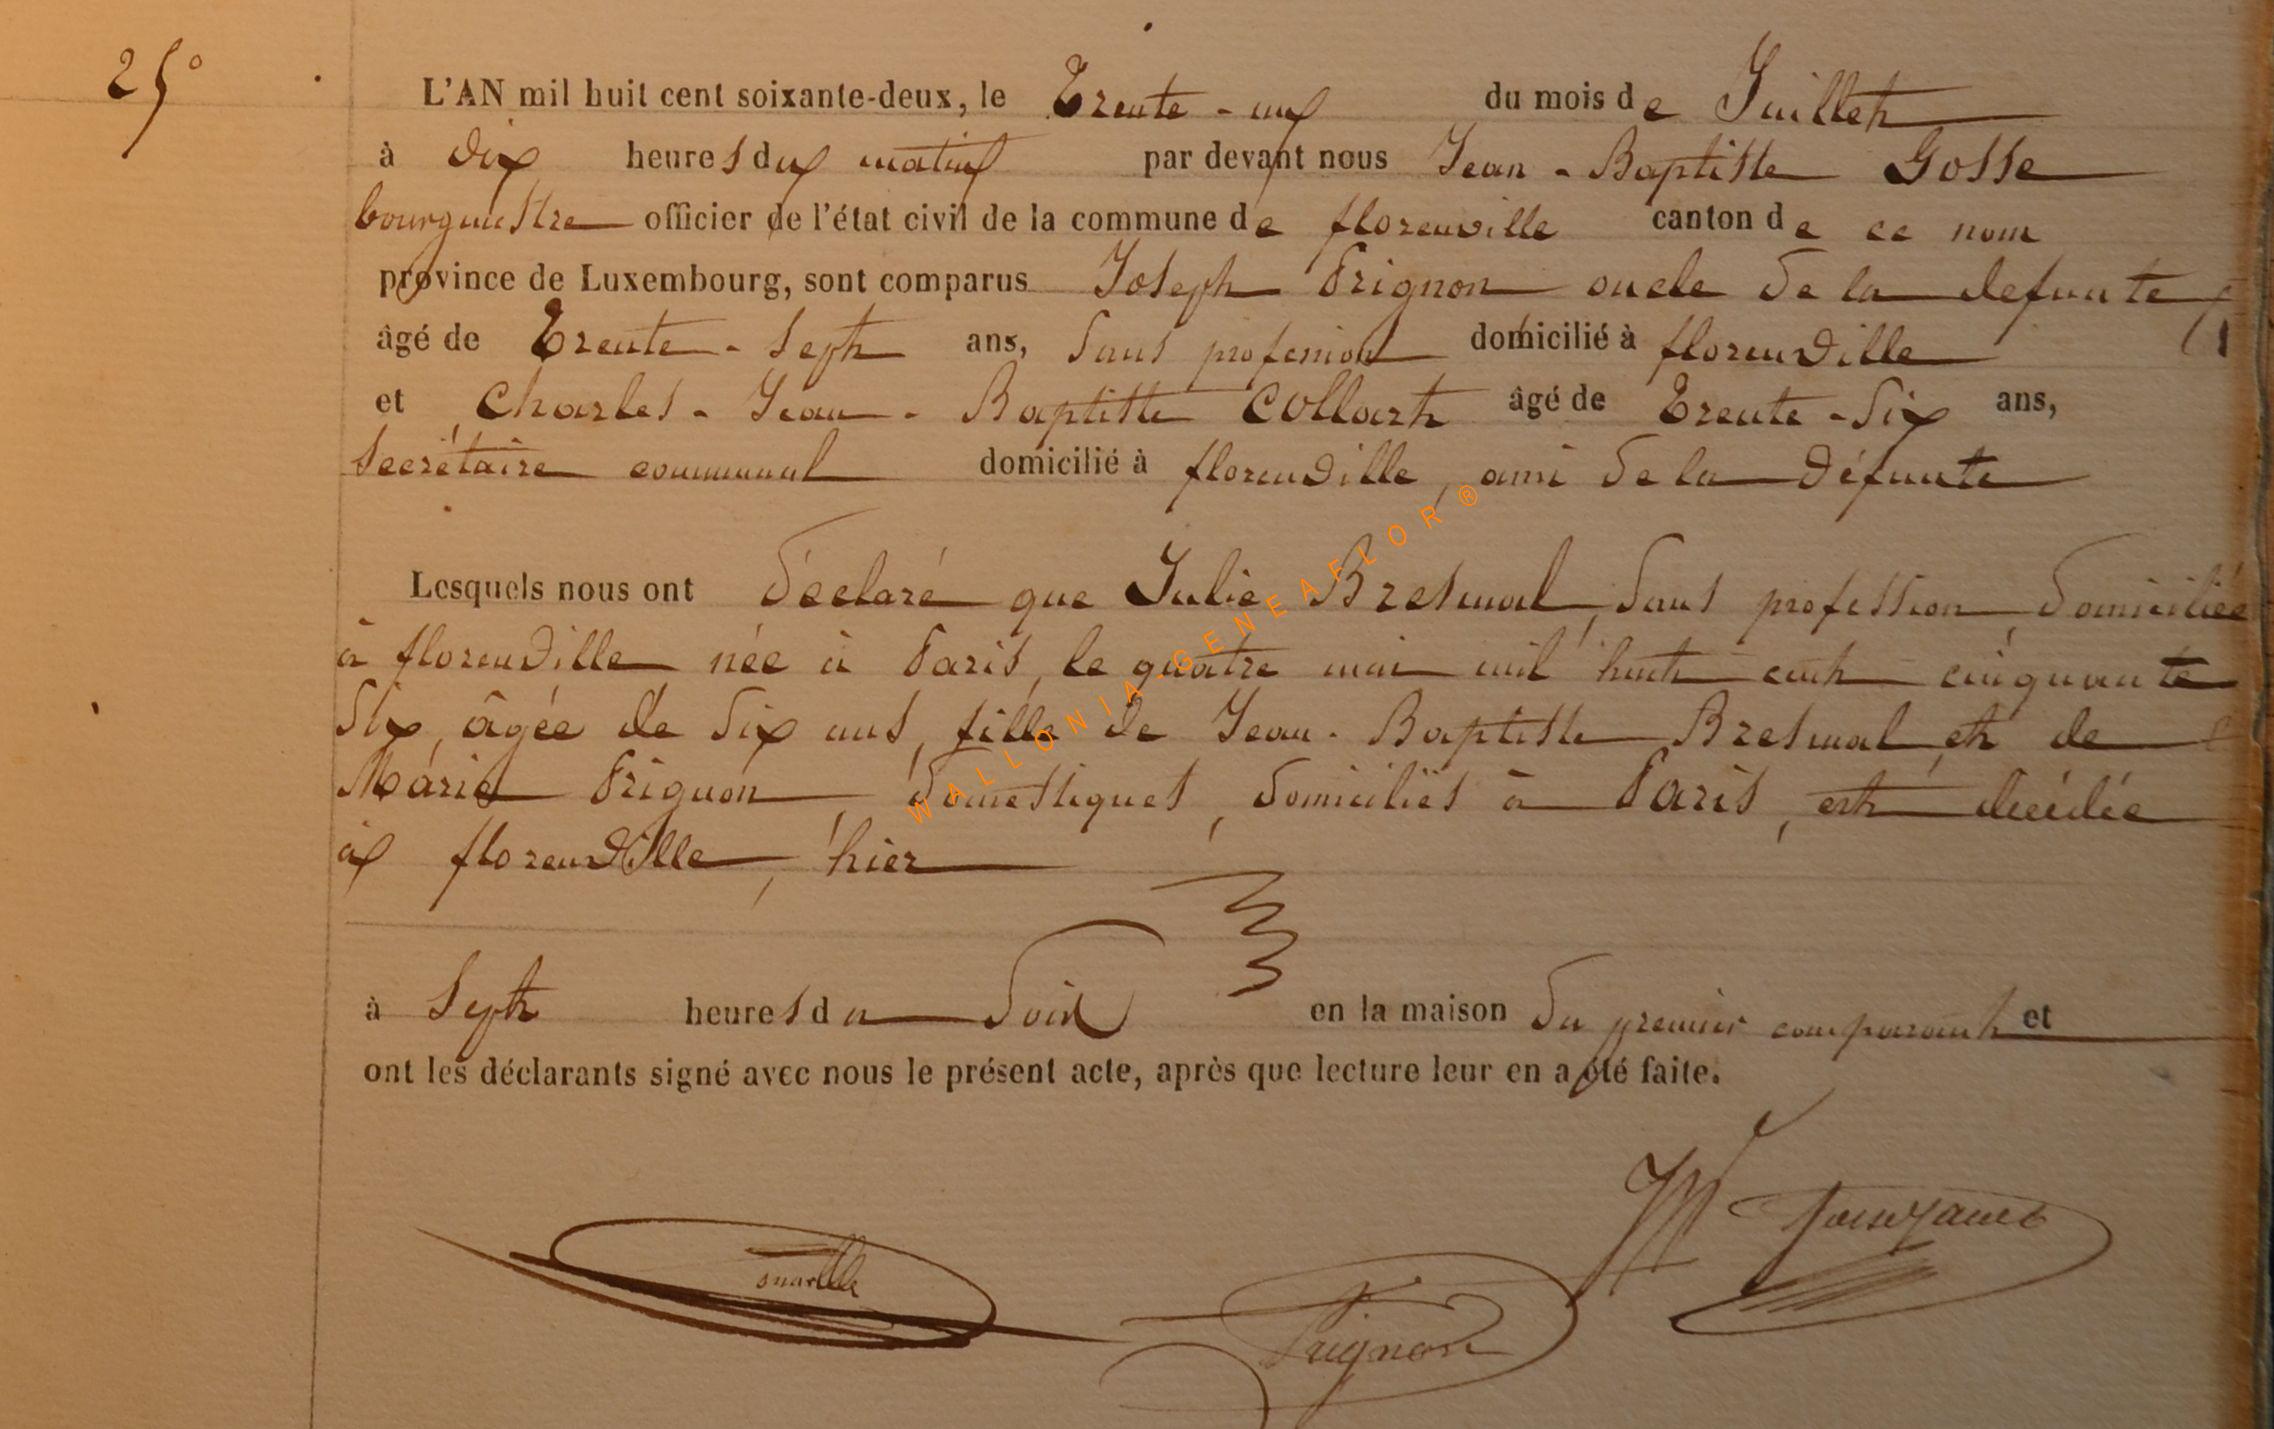 25°
L'AN mil huit cent soixante-deux, le Trente-un du mois de Juillet
à dix heures du matin par devant nous Jean-Baptiste Gosse
bourgmestre officier de l'état civil de la commune de florenville canton de ce nom
province de Luxembourg, sont comparus Joseph Prignon oncle de la defunte
âgé de Trente-sept ans, sans profession domicilié à florenville
et Charles-Jean-Baptiste Collart âgé de Trente-six ans,
secrétaire communal domicilié à florenville, ami de la défunte
Lesquels nous ont déclaré que Julie Bresmal, sans profession, domiciliée
à florenville née à Paris, le quatre mai mil huit cent cinquante
six, âgée de six ans, fille de Jean-Baptiste Bresmal et de
Marie Prignon, domestiques, domiciliés à Paris, est décédée
à florenville, hier
à sept heures du soir en la maison du premier comparant et
ont les déclarants signé avec nous le présent acte, après que lecture leur en a été faite.
Prignon
WALLONIA-GENEAFLOR®